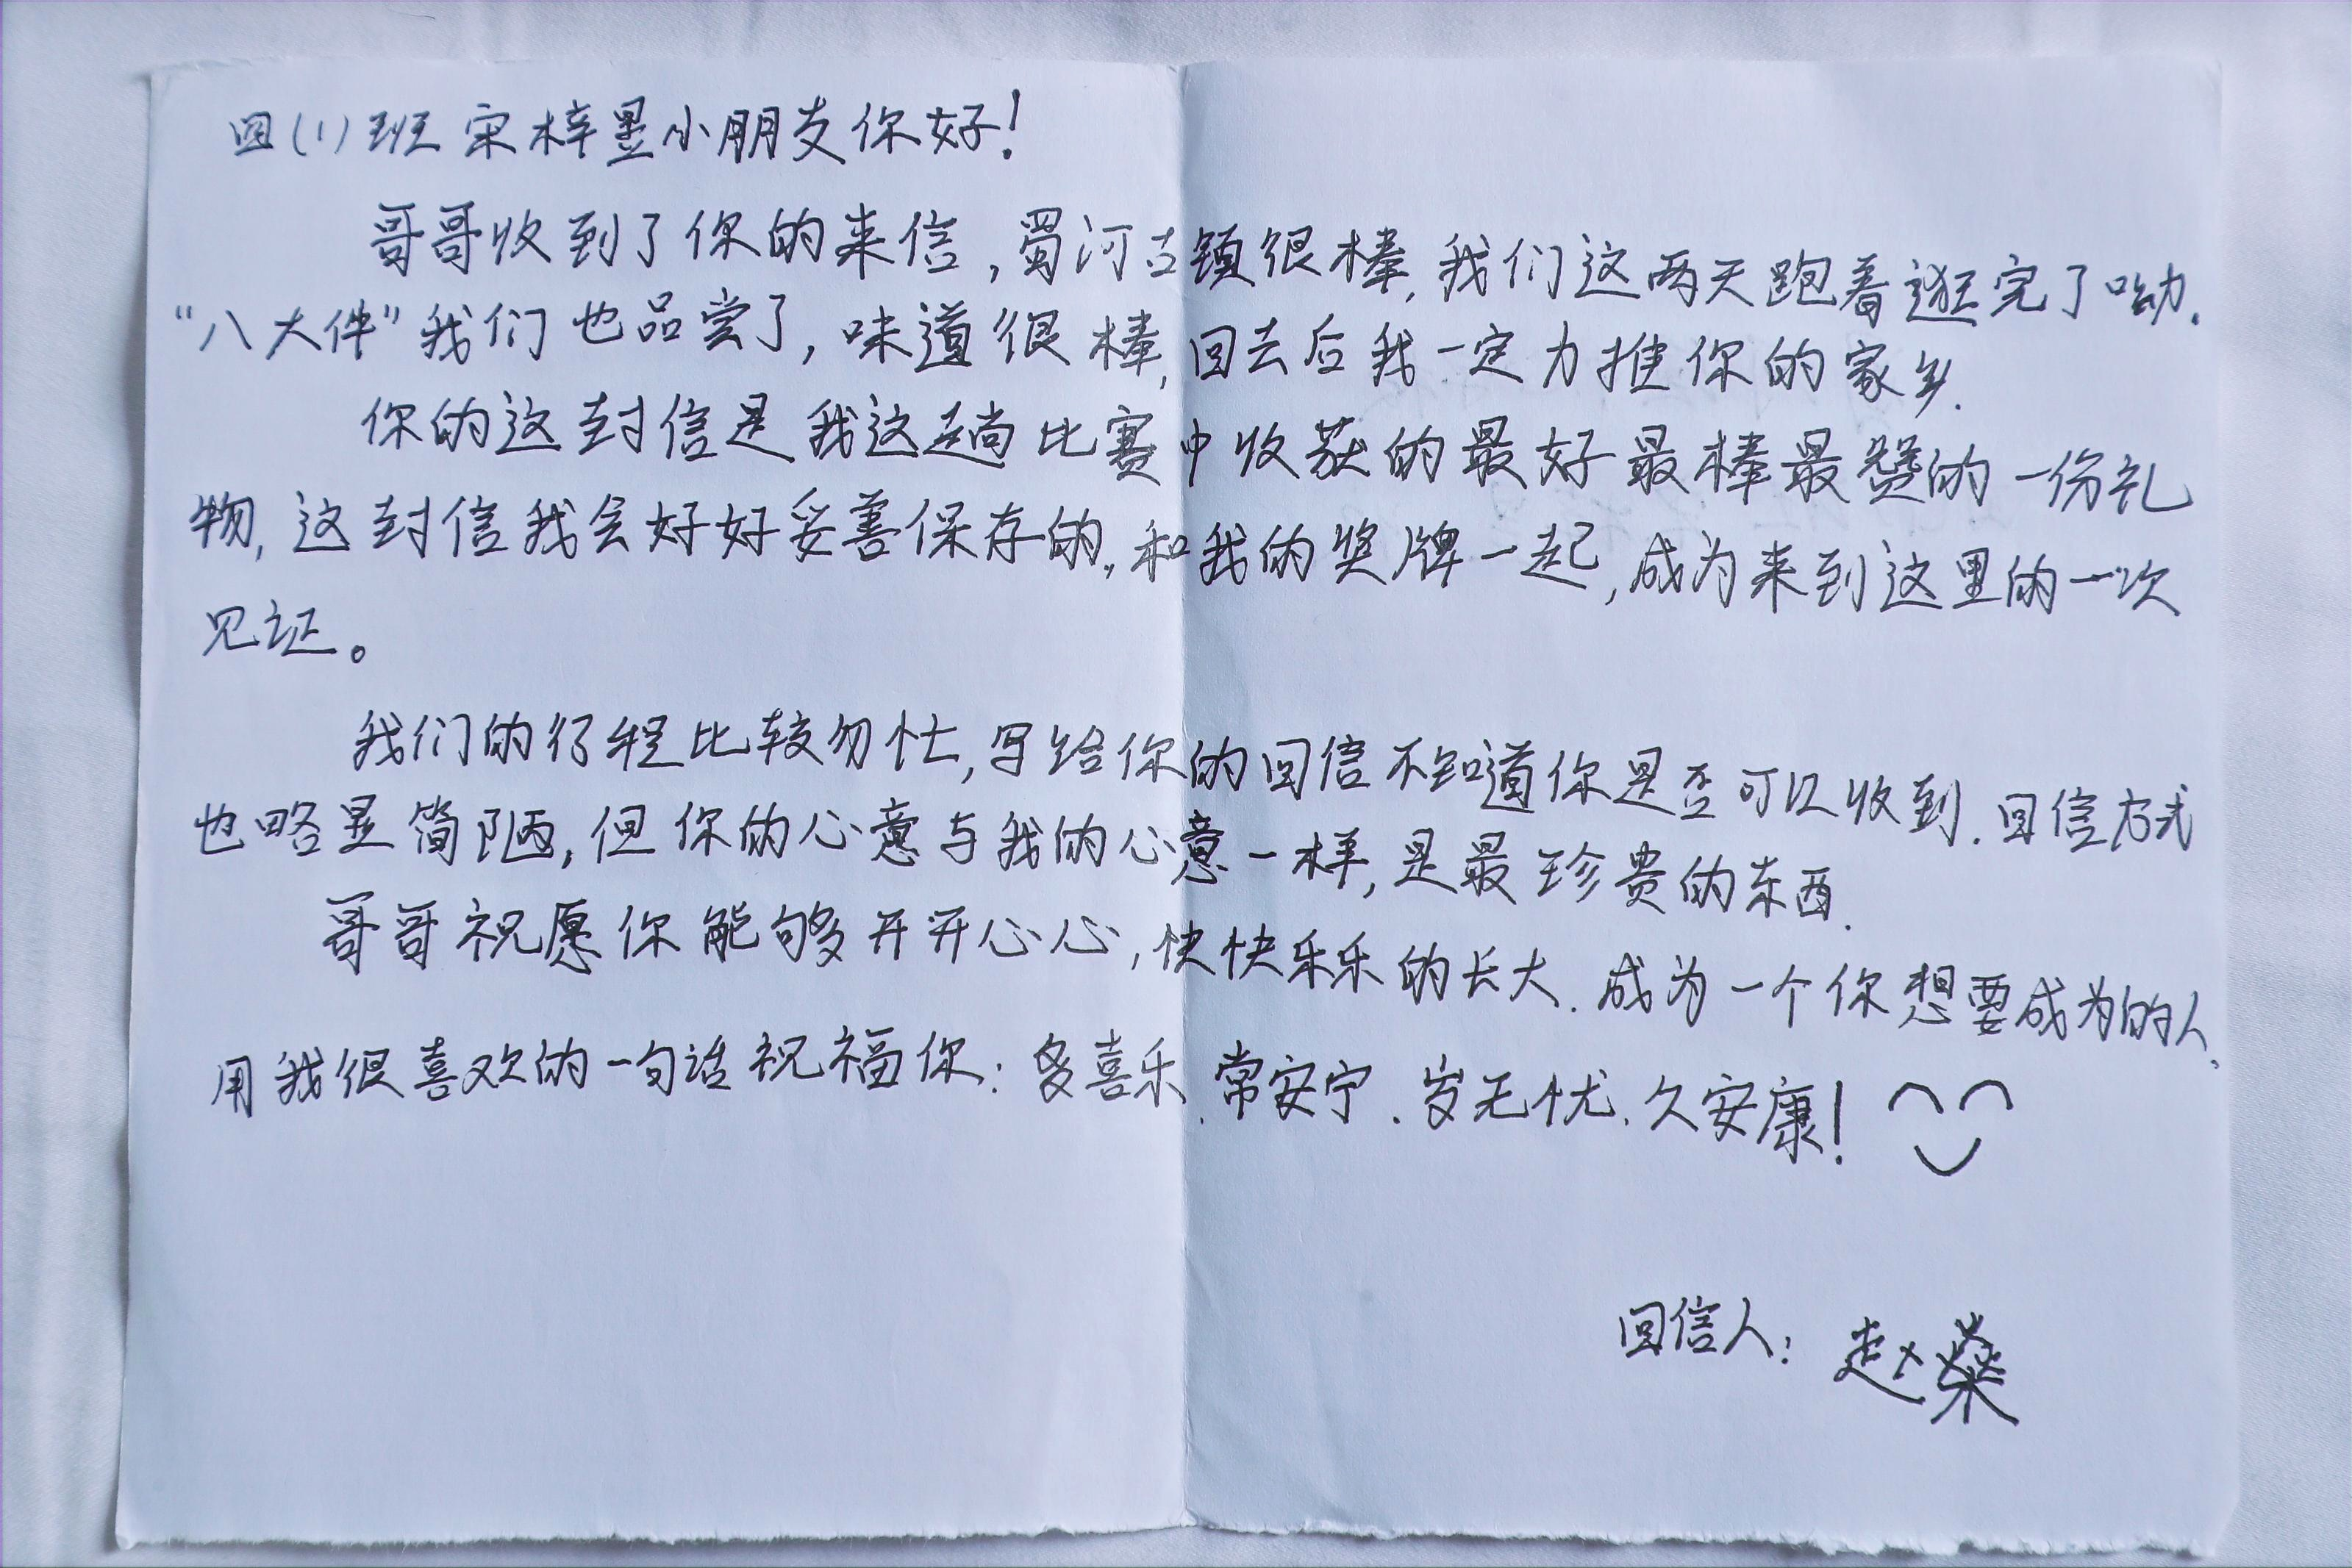 四(1)班宋梓昱小朋友你好!
哥哥收到了你的来信,蜀河古镇很棒,我们这两天跑着逛完了呦.
“八大件”我们也品尝了,味道很棒,回去后我一定力推你的家乡.
你的这封信是我这趟比赛中收获的最好最棒最赞的一份礼
物,这封信我会好好妥善保存的,和我的奖牌一起,成为来到这里的一次
见证。
我们的行程比较匆忙,写给你的回信不知道你是否可以收到.回信方式
也略显简陋,但你的心意与我的心意一样,是最珍贵的东西.
哥哥祝愿你能够开开心心,快快乐乐的长大.成为一个你想要成为的人,
用我很喜欢的一句话祝福你:多喜乐.常安宁.岁无忧.久安康!
回信人:赵燊